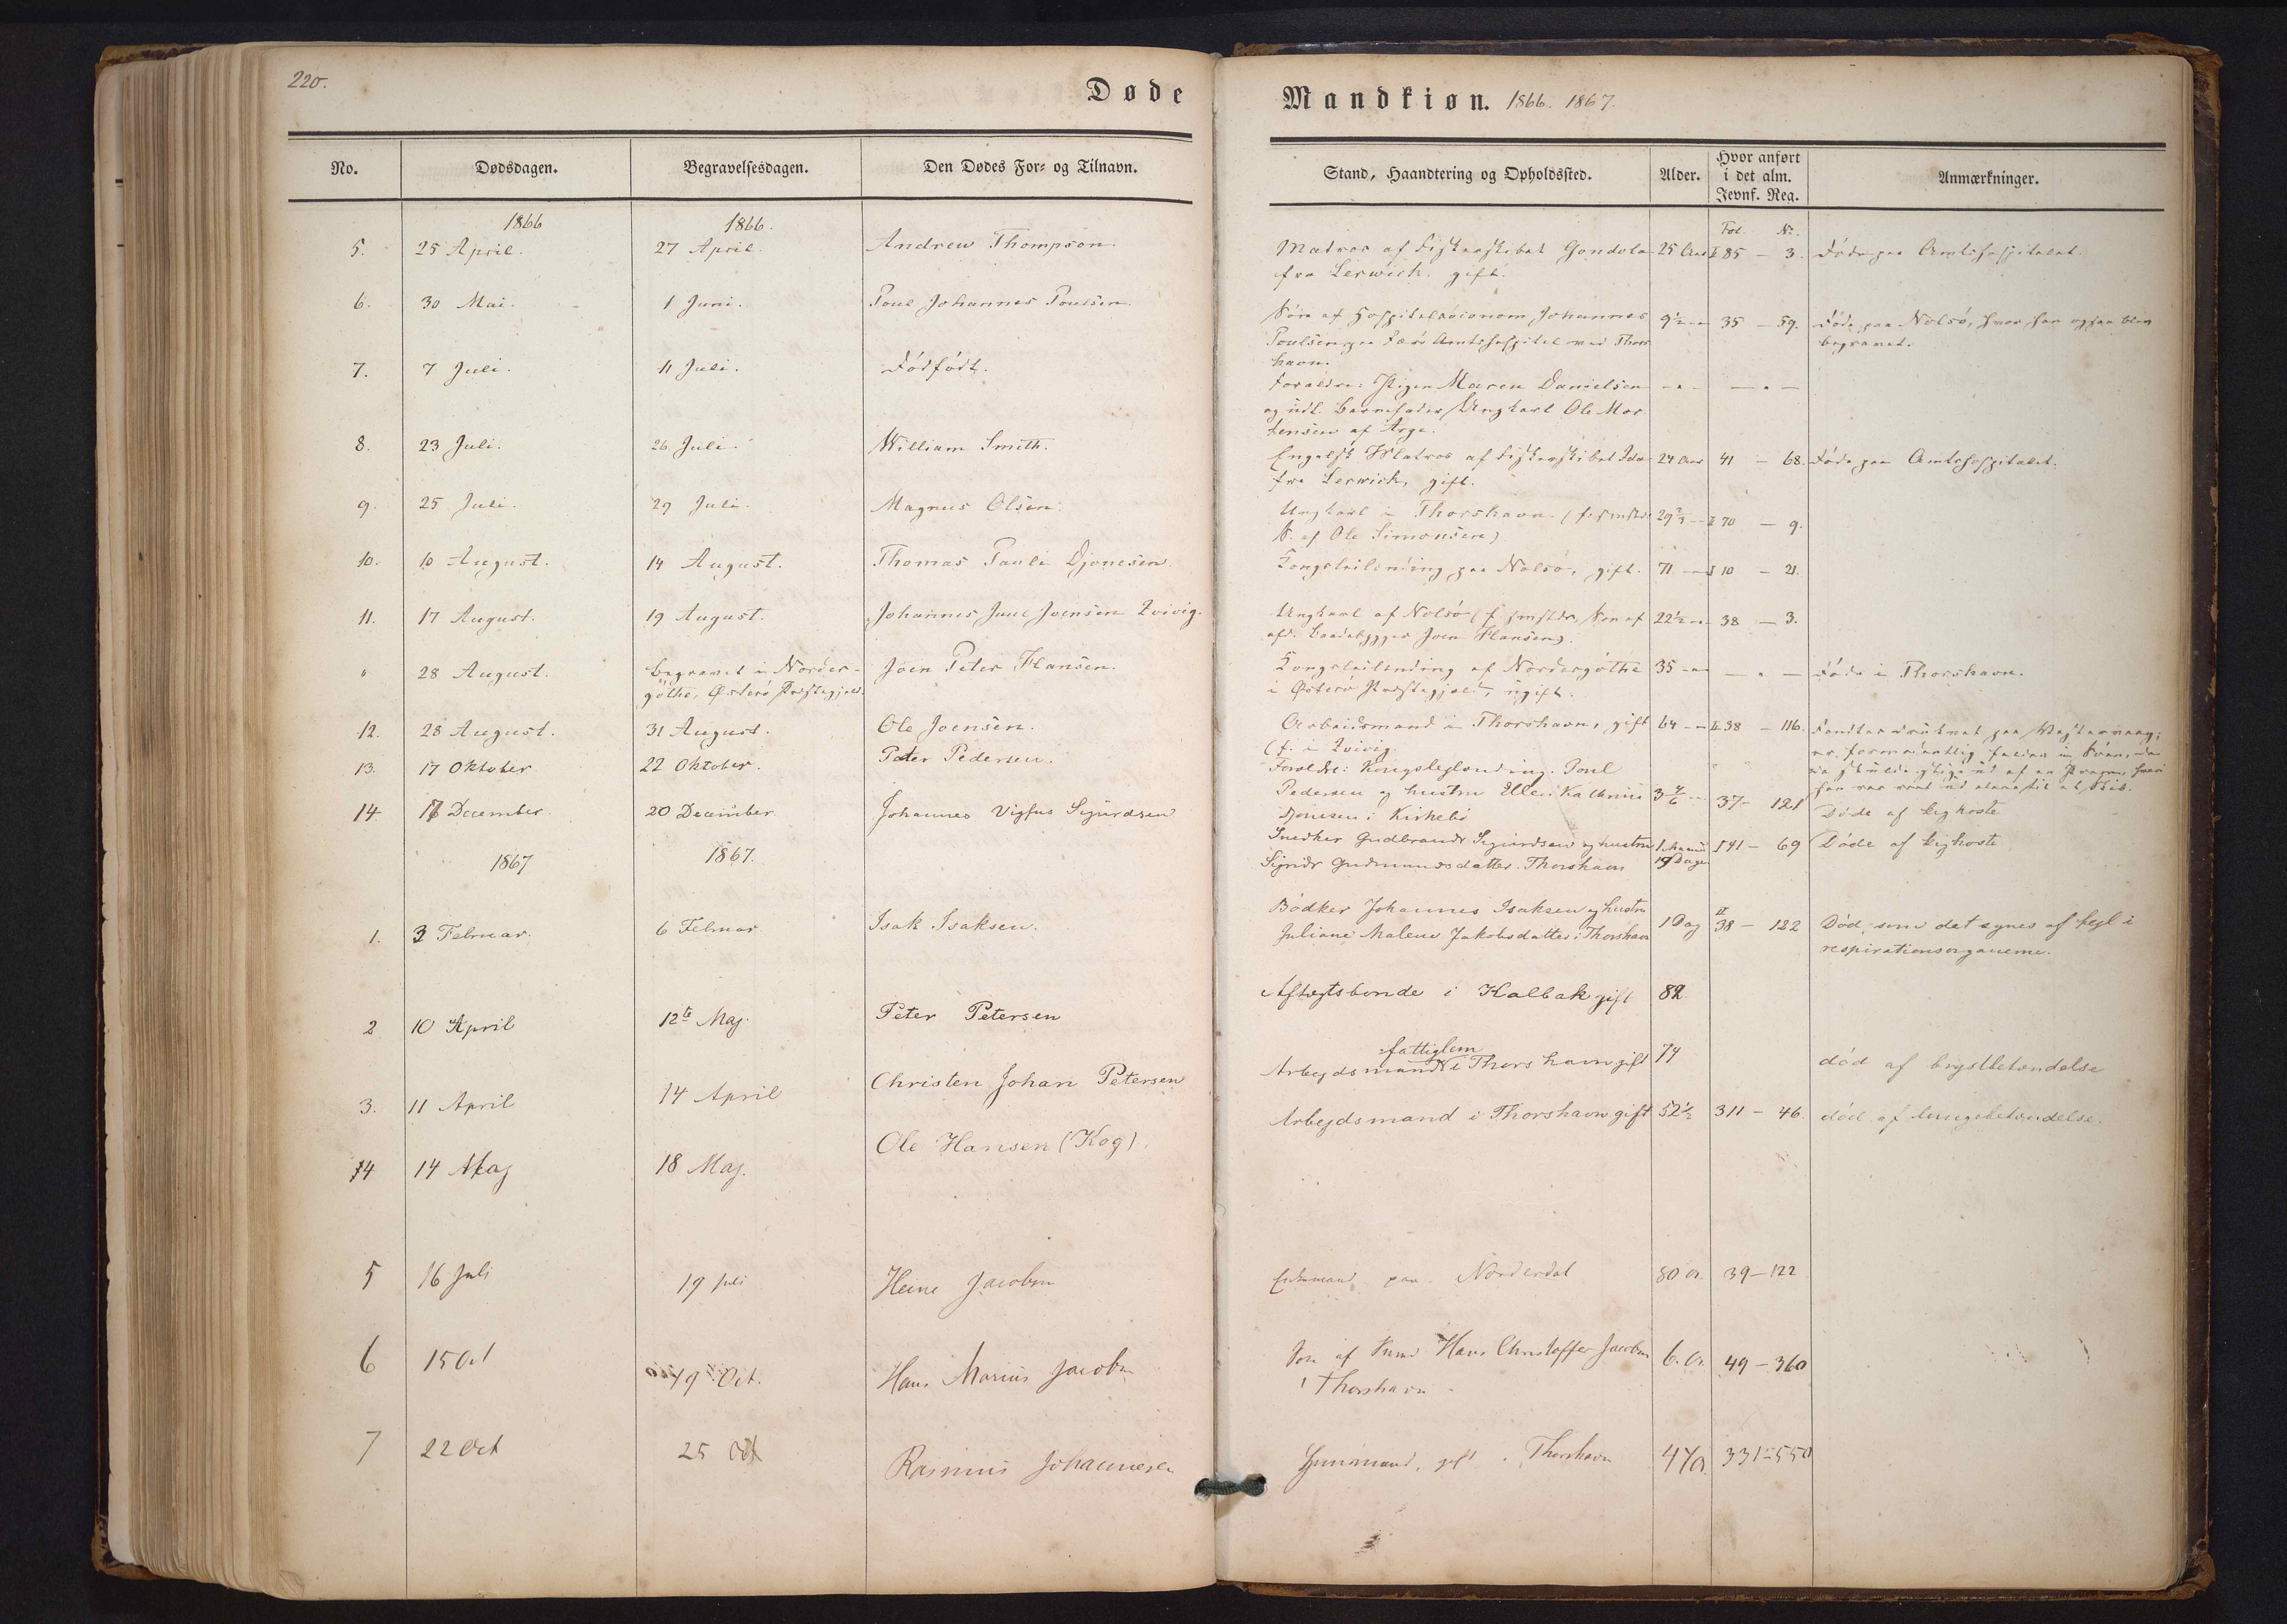 220.
Døde
No.
Dødsdagen.
Begravelsesdagen.
Den Dødes For- og Tilnavn.
1866
1866.
5. 25 April. 27 April. Andrew Thompson.
6. 30 Mai. 1 Juni. Poul Johannes Poulsen.
7. 7 Juli. 11 Juli. Dödfödt.
8. 23 Juli. 26 Juli. William Smith.
9. 25 Juli. 29 Juli. Magnus Olsen.
10. 10 August. 14 August. Thomas Pauli Djonesen.
11. 17 August. 19 August. Johannes Juul Joensen Qvivig.
" 28 August. begravet i Norder- Joen Peter Hansen.
göthe, Østerö Præstegjeld.
12. 28 August. 31 August. Ole Joensen.
13. 17 Oktober 22 Oktober. Peter Pedersen.
14. 17 December. 20 December Johannes Vigfus Sigurdsen
1867
1867.
1. 3 Februar. 6 Februar Isak Isaksen.
2 10 April 12te Maj. Peter Petersen
3. 11 April 14 April Christen Johan Petersen
4 14 Maj 18 Maj. Ole Hansen (Kog).
5 16 Juli 19 Juli Heine Jacobsen
6 15 Oct 19 Oct. Hans Marius Jacobsen
7 22 Oct 25 Oct Rasmus Johannesen
Mandkiøn. 1866. 1867.
Stand, Haandtering og Opholdssted.
Alder.
Hvor anført
i det alm.
Jevnf. Reg.
Anmærkninger.
Fol. No.
Matros af Fiskerskibet Gondola 25 Aar I 85 - 3. Döde paa Amtshospitalet.
fra Lerwick. gift.
Sön af Hospitalsöconom Johannes 9½ - 35 - 59. Döde paa Nolsö, hvor han ogsaa blev
Poulsen paa Færö Amtshospital ved Thors begravet.
havn.
Forældre: Pigen Maren Danielsen - " - - " -
og udl. Barnefader Ungkarl Ole Mor
tensen af Arge.
Engelsk Matros af Fiskerskibet Ida 24 Aar 41 - 68. Döde paa Amtshospitalet.
fra Lerwick, gift.
Ungkarl i Thorshavn 29 70 - 9.
S. af Ole Simonsen)
Kongsleilending paa Nolsö, gift. 71 I 10 - 21.
Ungkarl af Nolsö Sön af 22½ 38 - 3.
afd. Baadebygger Joen Hansen).
Kongsleilending af Nordergöthe 35 - " - Döde i Thorshavn.
i Østerö Præstegjeld, ugift.
Arbeidsmand i Thorshavn, gift 64 II 38 - 116. Fandtes druknet paa
(f. i Qvivig.
Forældre: Kongsleglending. Poul
Pedersen og hustru Ellen Kathrine 3 4/6 37 - 121 Döde af kighoste
Djonesen i Kirkebö
Snedker Gudbrandr Sigurdsen og hustru 1 Maaned I 41 - 69 Döde af kighoste
Sigridr Gudmundsdatter. Thorshavn 19 Dage
Bödker Johannes Isaksen og hustru 1 Dag II 38 - 122 Död, som det synes af fejl i
Juliane Malene Jakobsdatter i Thorshavn respirationsorganerne.
Aftægtsbonde i Kalbak gift 82
fattiglem
Arbejdsmand i Thorshavn gift 74 död af brystbetændelse
Arbejdsmand i Thorshavn gift 52½ 311 - 46. död af lungebetændelse.
Enkemand paa Norderdal 80 A. 39 - 122
Sön af Hans Christoffer Jacobsen 6. A. 49 - 360
i Thorshavn
gift i Thorshavn 47 A. 331 - 550